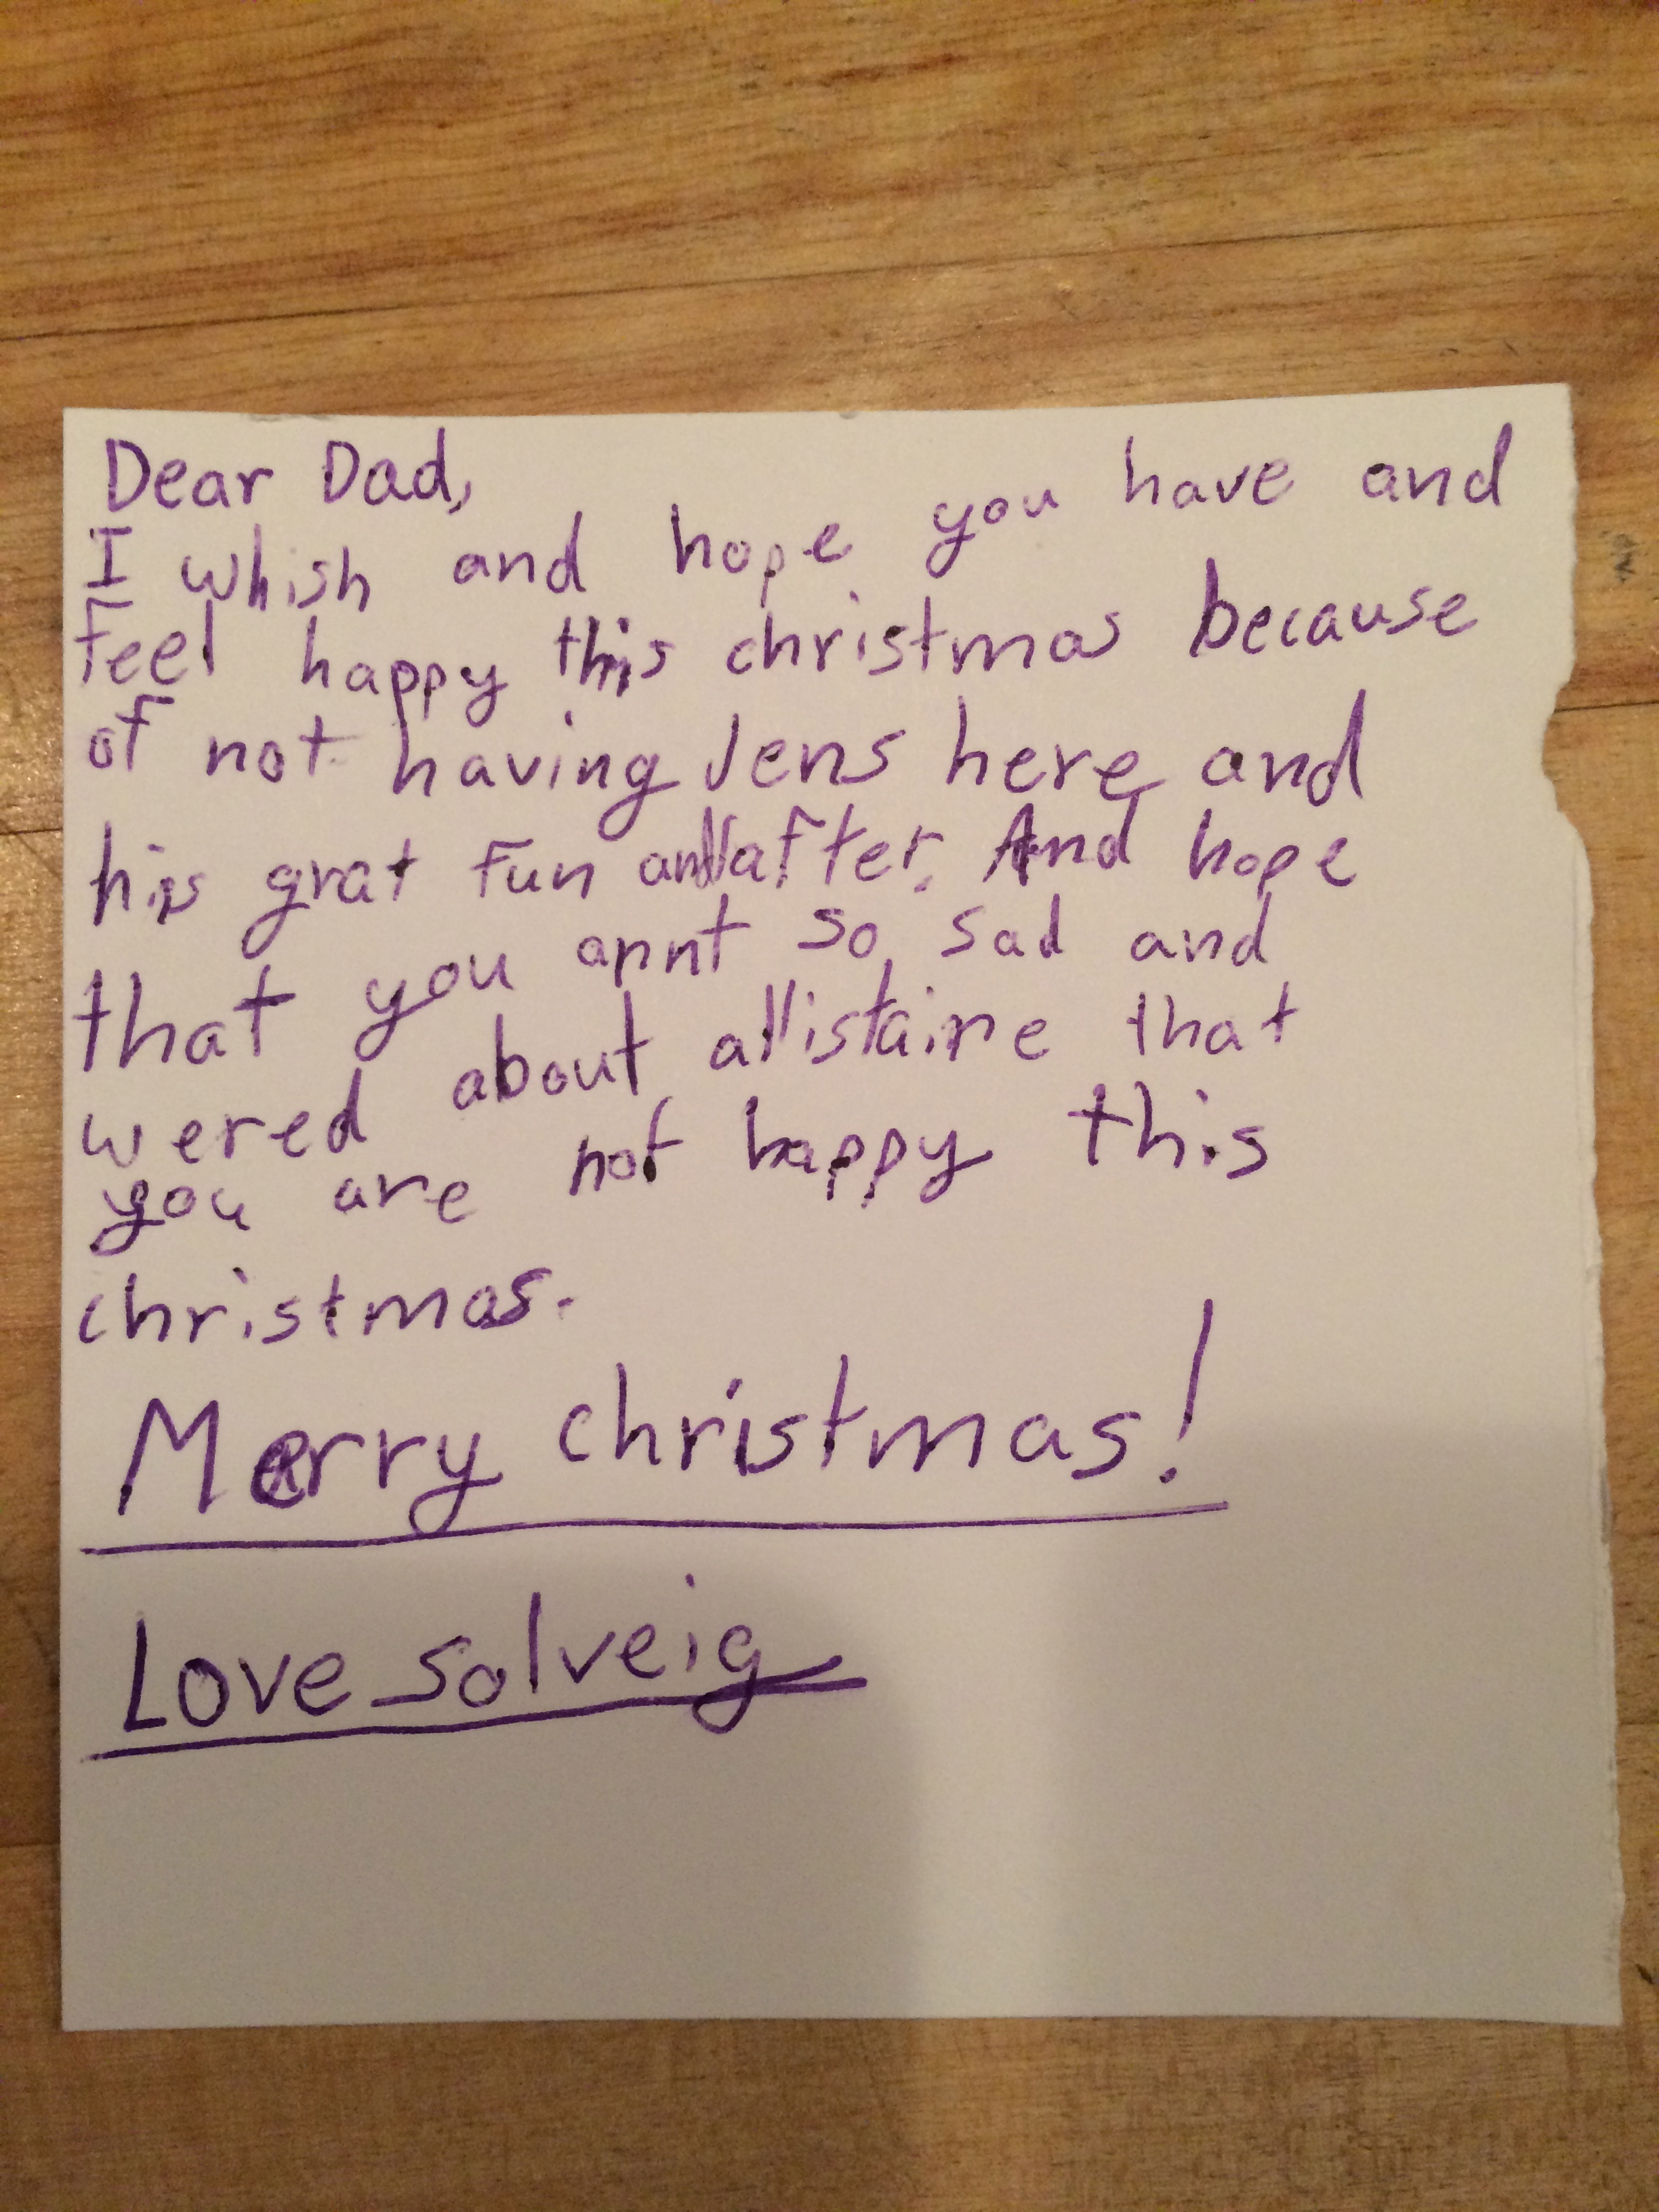 Dear Dad,
I whish and hope you have and
feel happy this christmas because
of not having Jens here and
his grat fun and lafter. And hope
that you arnt so sad and
wered about allistaire that
you are not happy this
christmas.
Merry christmas!
Love solveig